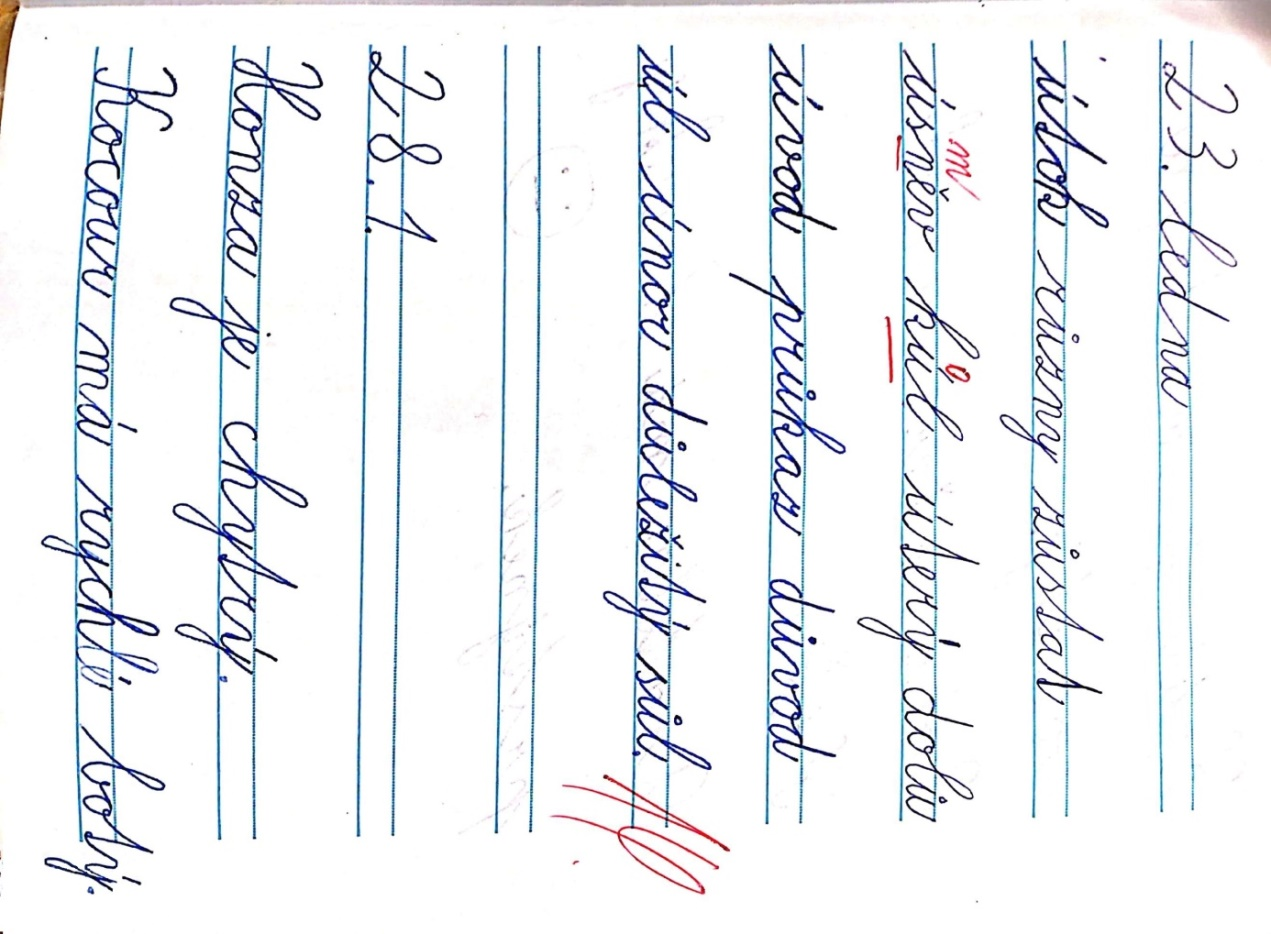 23. ledna
útok různy zůstat
úsněv kúl úterý dolů
úvod průkaz důvod
úl únor důležitý sůl
28. 1.
Honza je chytrý.
Kocour má rychlé boty.